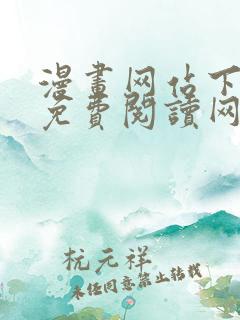 漫畫网佔下
免費閱讀网
杭元祥
未经同意禁止转载